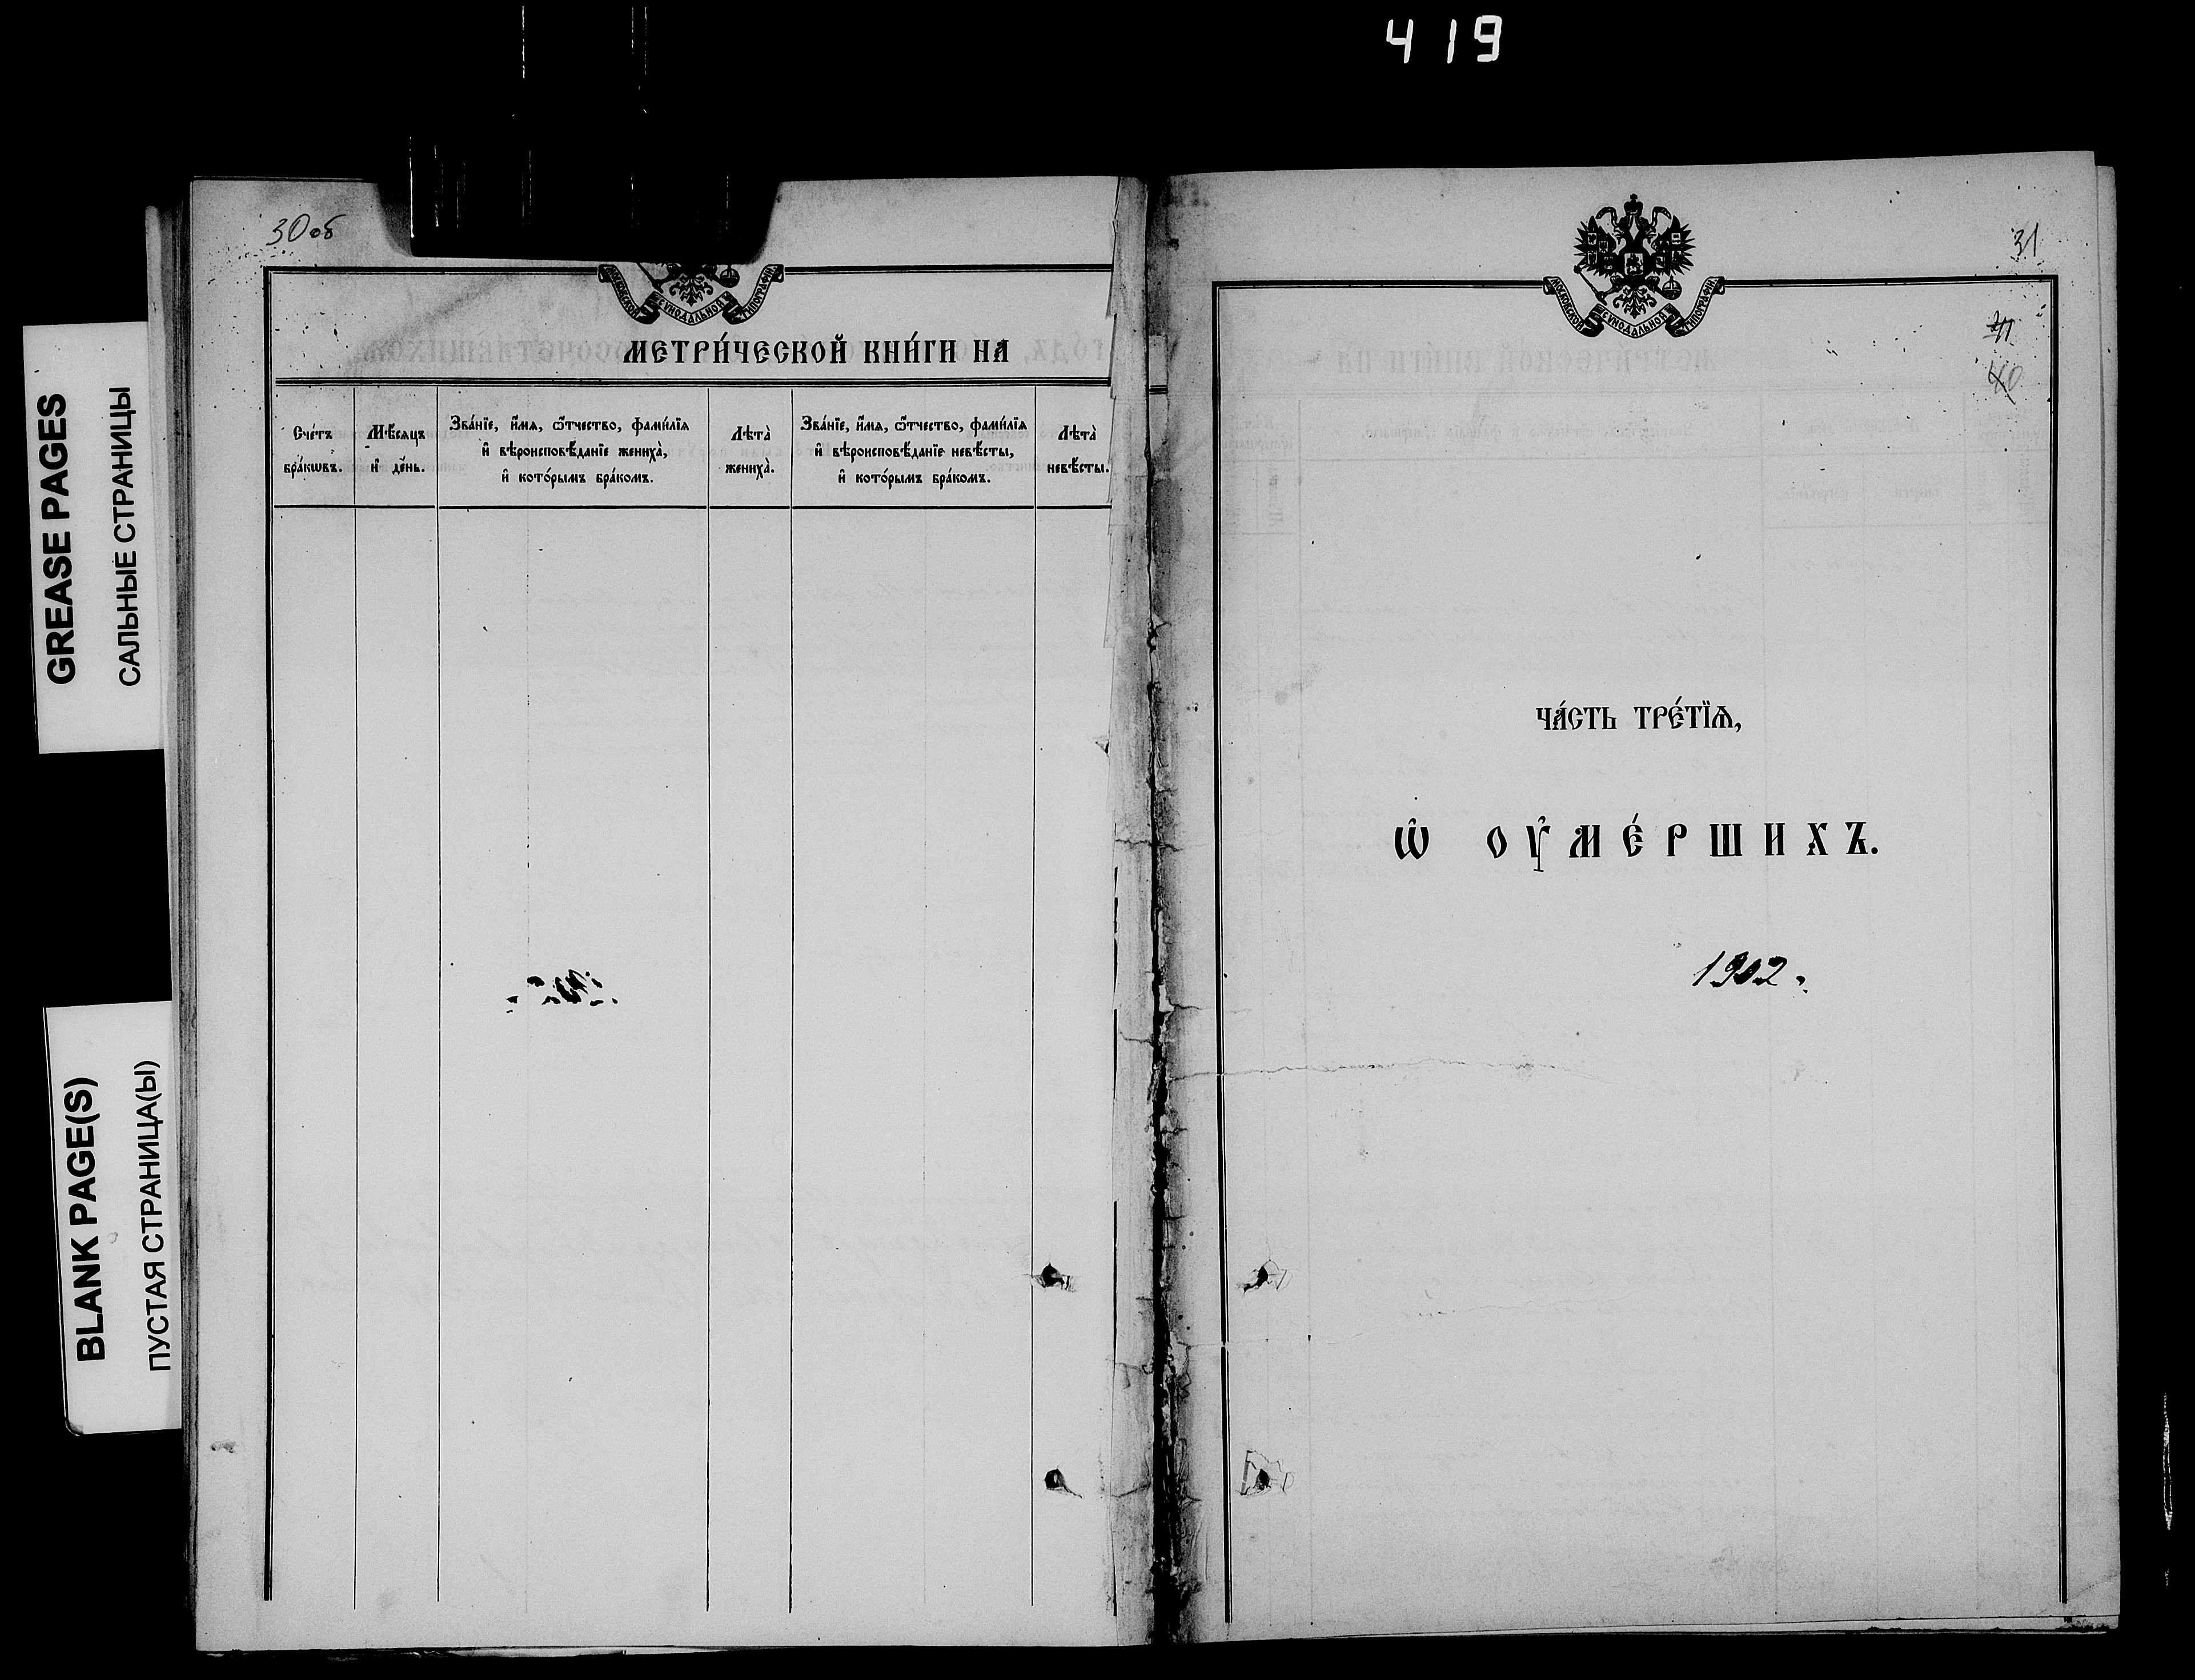 419
GREASE PAGES
САЛЬНЫЕ СТРАНИЦЫ
BLANK PAGE(S)
ПУСТАЯ СТРАНИЦА(Ы)
30 об
МОСКОВСКОЙ СѴНОДАЛЬНОЙ ТИПОГРАФІИ
МЕТРИ́ЧЕСКОЙ КНИ́ГИ НА
Сче́тъ
бра́кѡвъ.
Мѣ́сяцъ
и҆ де́нь.
Зва́нїе, и҆́мѧ, ѻ҆́тчество, фами́лїѧ
и҆ вѣроисповѣ́данїе жениха̀,
и҆ кото́рымъ бра́комъ.
Лѣта̀
жениха̀.
Зва́нїе, и҆́мѧ, ѻ҆́тчество, фами́лїѧ
и҆ вѣроисповѣ́данїе невѣ́сты,
и҆ кото́рымъ бра́комъ.
Лѣта̀
невѣ́сты.
31
МОСКОВСКОЙ СѴНОДАЛЬНОЙ ТИПОГРАФІИ
40
ЧА́СТЬ ТРЕ́ТЇѦ,
Ѡ҆ ОУ҆МЕ́РШИХЪ.
1902 г.